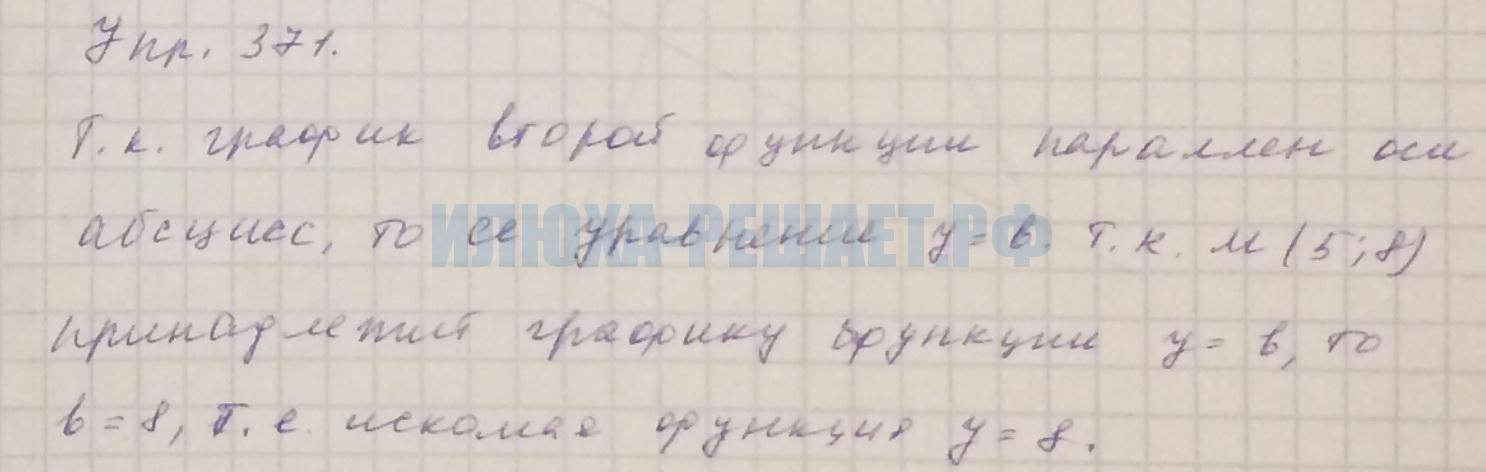 Упр. 371.
Т.к. график второй функции параллен оси
абсцисс, то ее уравнение y = b. т.к. M (5; 8)
ИЛЮХА-РЕШАЕТ.РФ
принадлежит графику функции y = b, то
b = 8, т.е. искомая функция y = 8.